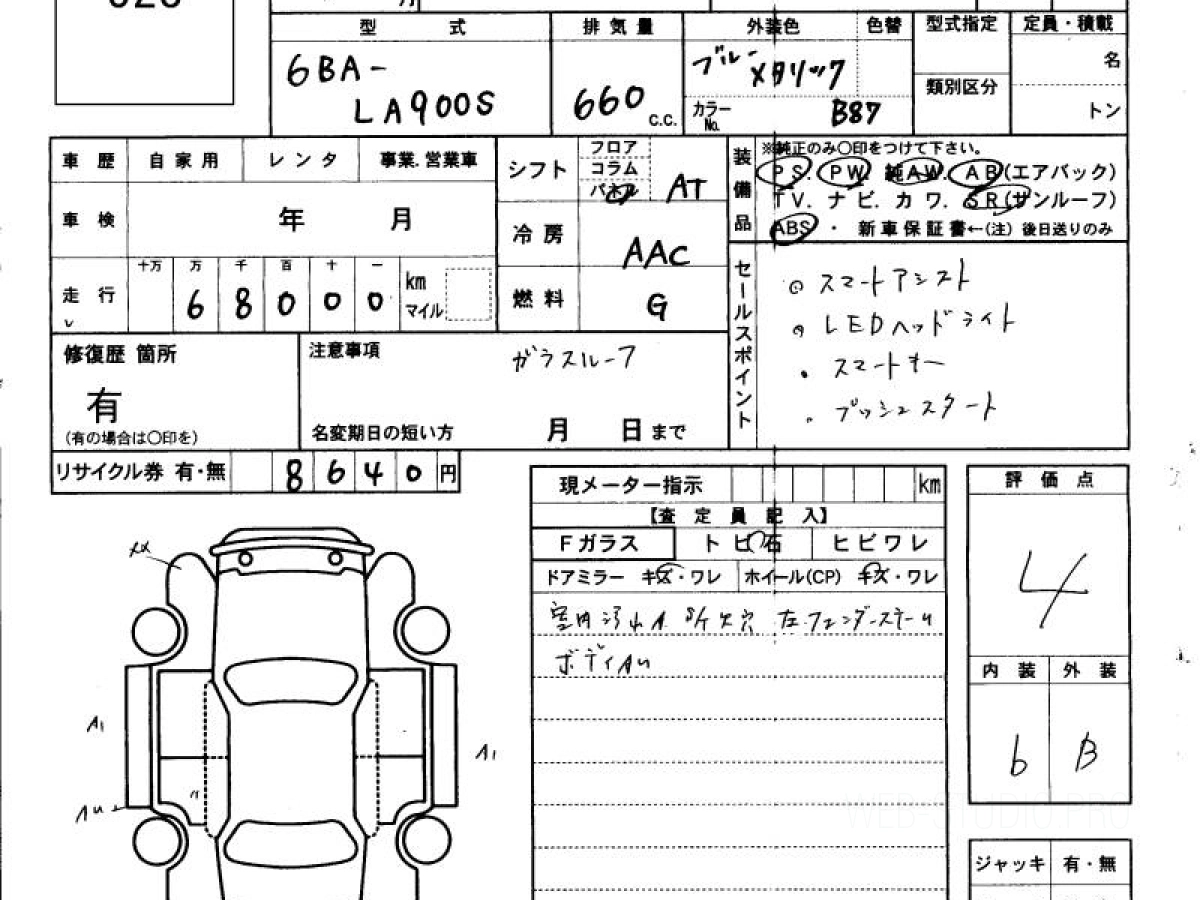 型 式 排気量 外装色 色替 型式指定 定員・積載
6BA-
LA900S
660 c.c.
ブルー
メタリック
カラーNo. B87
類別区分
名
トン
車歴 自家用 レンタ 事業.営業車
車検 年 月
走行 十万 万 千 百 十 一
6 8 0 0 0 km
マイル
シフト フロア
コラム
パネル
AT
冷房 AAC
燃料 G
装備品
※純正のみ〇印をつけて下さい。
PS. PW. 純AW. AB(エアバック)
TV. ナビ. カワ. SR(サンルーフ)
ABS ・ 新車保証書←(注) 後日送りのみ
セールスポイント
スマートアシスト
LEDヘッドライト
スマートキー
プッシュスタート
修復歴 箇所
有
(有の場合は〇印を)
注意事項
ガラスルーフ
名変期日の短い方 月 日まで
リサイクル券 有・無 8 6 4 0 円
現メーター指示 km
【査定員記入】
Fガラス トビ石 ヒビワレ
ドアミラー キズ・ワレ ホイール(CP) キズ・ワレ
評価点
4
内装 外装
b B
ジャッキ 有・無
XX
A1
A1
WEB-STUDIO.PRO